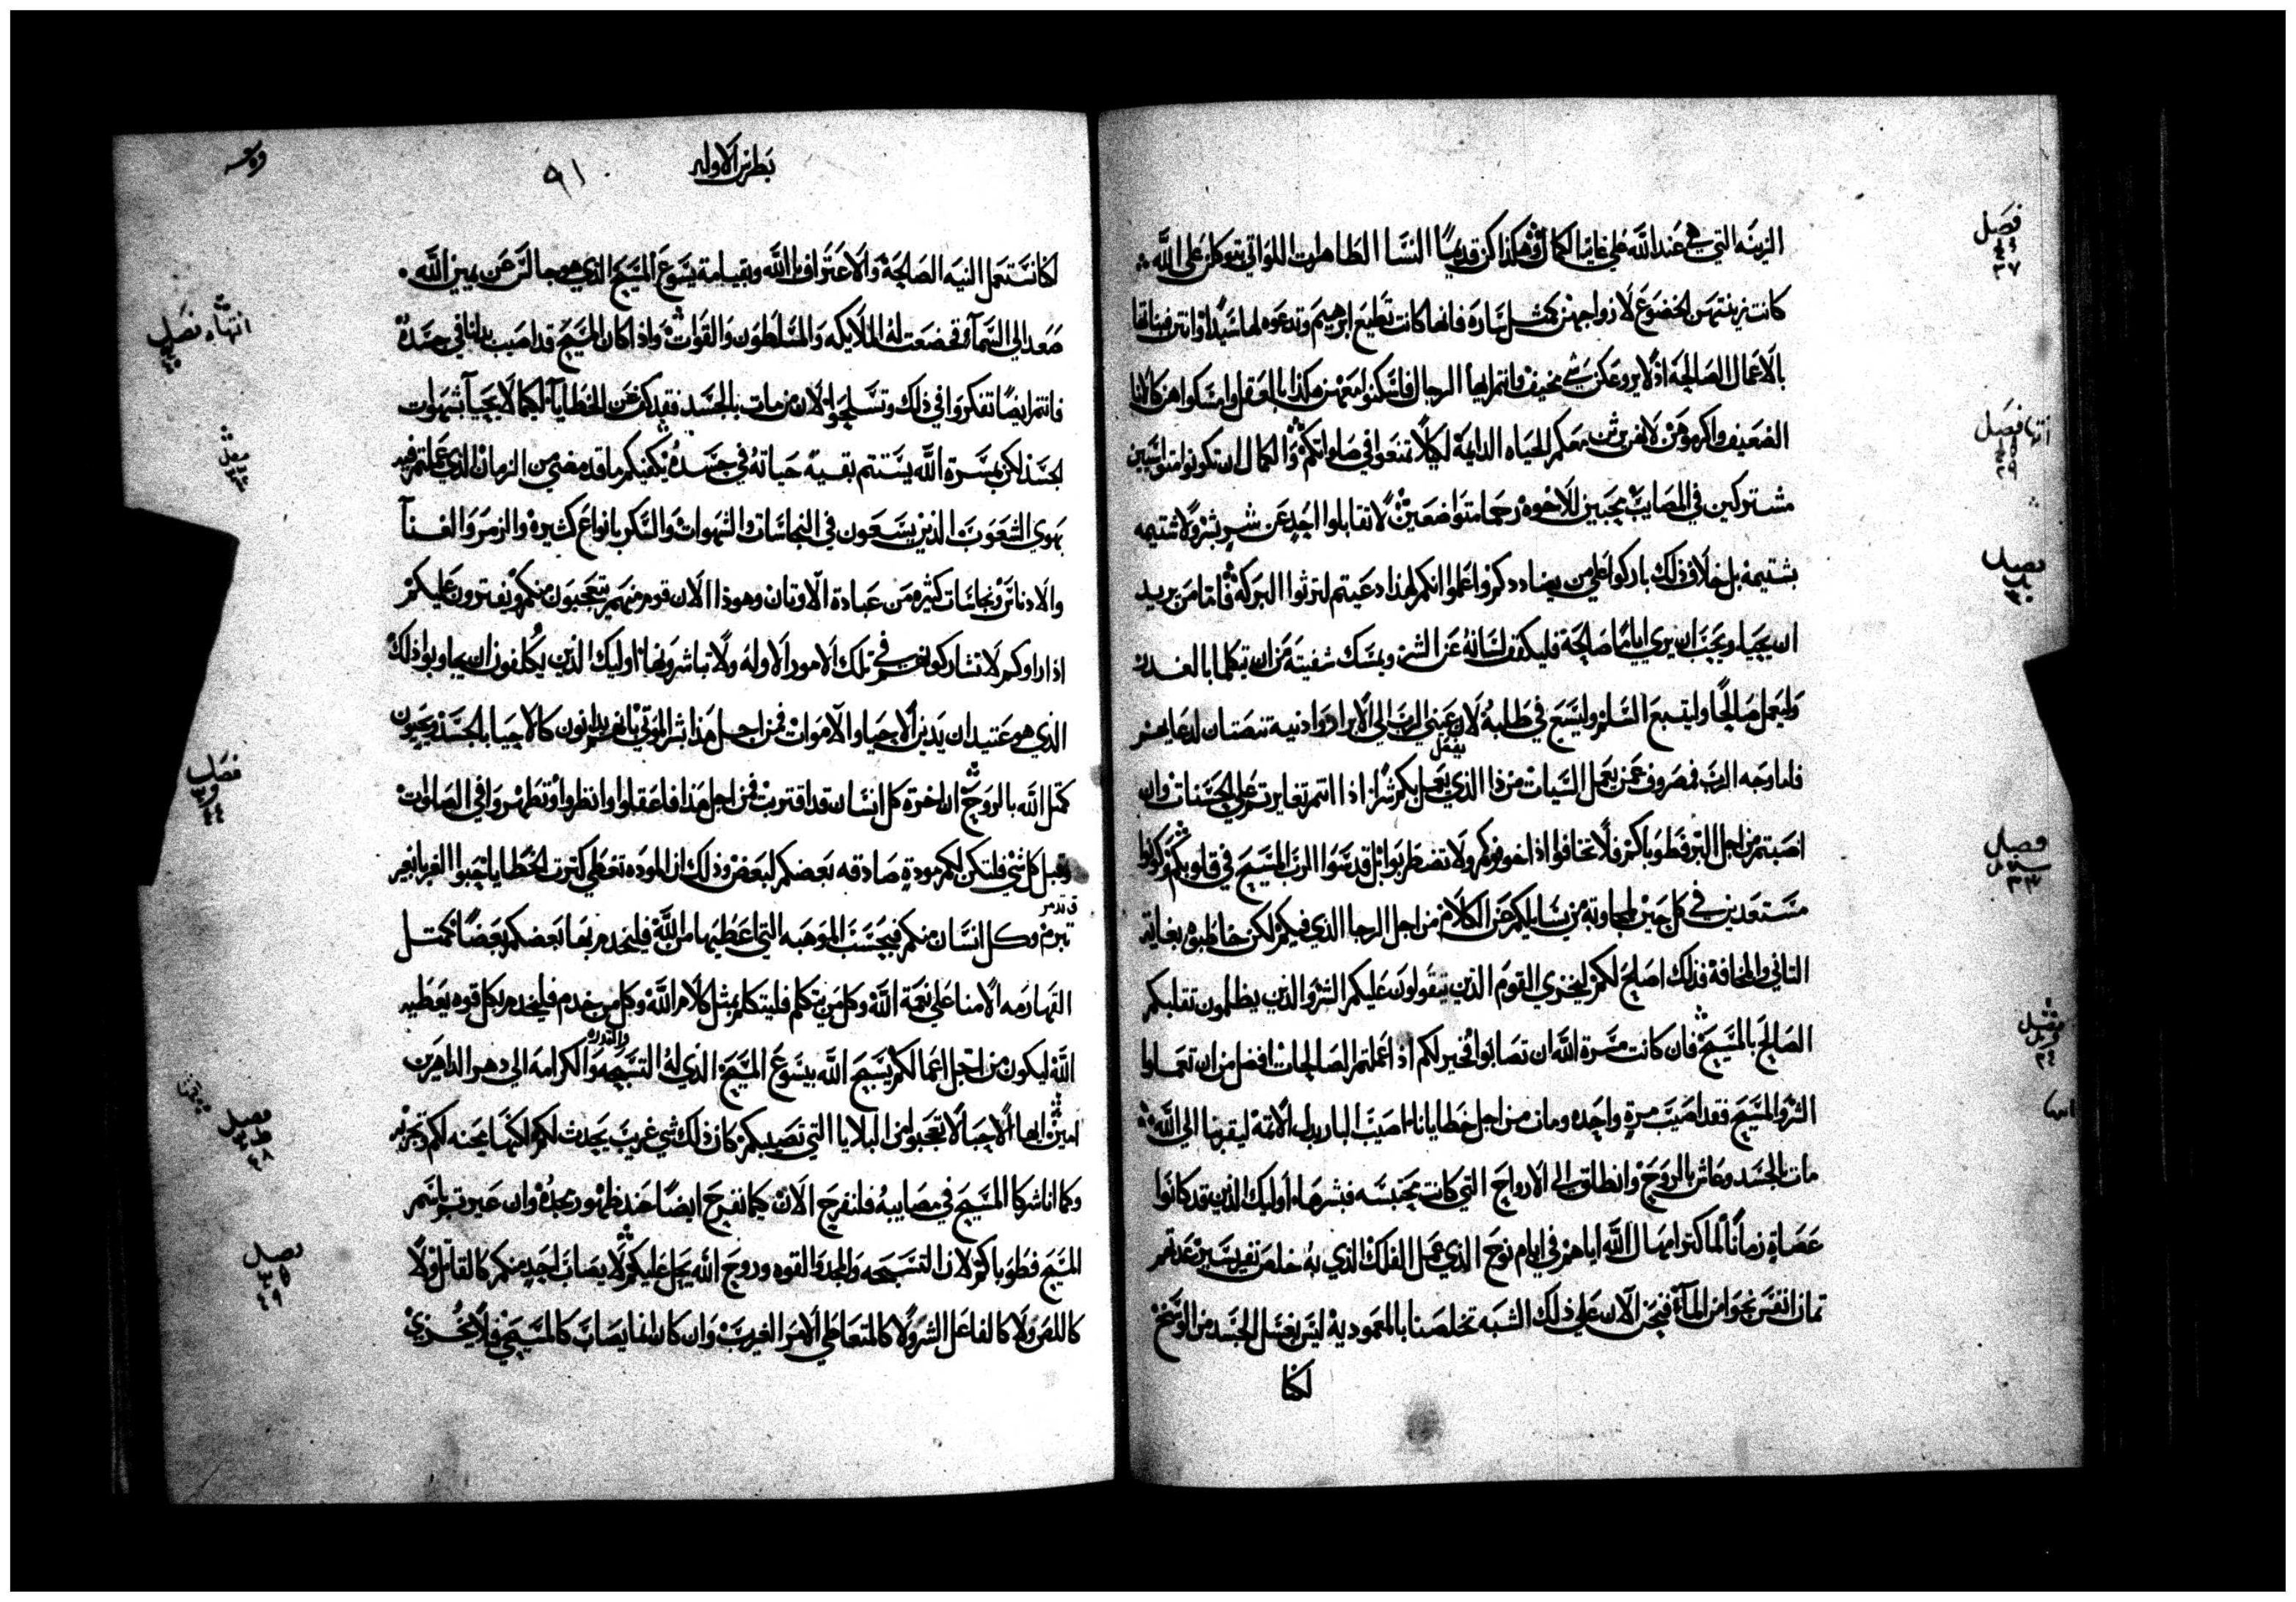 الزينه التي هي عند الله علي غاية الكمال وهكذا كن قديمًا النسا الطاهرات اللواتي يتوكلن علي الله
كانت زينتهن الخضوع لازواجهن كمثل ساره فانها كانت تطيع ابرهيم وتدعوه لها سيدًا وانتن فبناتها
بالاعمال الصالحة اذ لا يروعكن شي مخيف وانتم ايها الرجال فاسكنوا معهن هكذا بالعقل وامسكوا هن كالانا
الضعيف واكرموهن لانهن يرثن معكم الحياه الدايمة لكيلا تمنعوا في صلواتكم والكمال ان تكونوا متواسيين
مشتركين في المصايب محبين للاخوه رحما متواضعين لا تقابلوا احدٍ عن شرٍ بشر ولا شتيمه
بشتيمة بل خلاف ذلك باركوا علي من يضاددكم واعلموا انكم لهذا دعيتم لترثوا البركه فاما من يريد
ان يحيا ويحب ان يري ايامًا صالحة فليكفف لسانه عن الشر ويمسك شفيته من ان تتكلما بالغدر
وليعمل صالحًا وليتبع السلم وليسع في طلبه لان عيني الرب الي الابرار واذنيه تنصتان لدعايهم
فاما وجه الرب فمصروف عمن يعمل السيات من ذا الذي يعمل بكم شرًا اذا انتم تغايرتم علي الحسنات وان
يفعل
اصبتم من اجل البر فطوباكم فلا تخافوا اذا خوفوكم ولا تضطربوا بل قدسوا الرب المسيح في قلوبكم وكونوا
مستعدين في كل حين لمجاوبة من يسايلكم عن الكلام من اجل الرجا الذي فيكم لكن خاطبوه بغاية
التاني والمخافة فذلك اصلح لكم ليخزي القوم الذين يتقولون عليكم الشر والذين يظلمون تقلبكم
الصالح بالمسيح فان كانت مسرة الله ان تصابوا فخير لكم اذا عملتم الصالحات افضل من ان تعملوا
الشر والمسيح فقد اصيب مرةٍ واحده ومات من اجل خطايانا اصيب البار بدل الاثمة ليقربنا الي الله
مات بالجسد وعاش بالروح وانطلق الي الارواح التي كانت محتبسه فبشرها اوليك الذين قد كانوا
عصاةٍ زمانًا لما كثر امهال الله اياهم في ايام نوح الذي عمل الفلك الذي به خلص نفر يسير عدتهم
ثمان انفس نجوا من المآء فنحن الان علي ذلك الشبه تخلصنا بالمعمودية ليس بغسل الجسد من الوسخ
لكنا
فصل
٣٧
انتها فصل
فصل
٣٠
فصل
٣٣
فصل
بطرس الاوله
٩١
لكنا نستعمل النيه الصالحة والاعتراف بالله وبقيامة يسوع المسيح الذي هو جالس عن يمين الله
صعد الي السمآء فخضعت له الملايكه والمسلطون والقوات واذا كان المسيح قد اصيب بدلنا في جسده
فانتم ايضًا تفكروا في ذلك وتسلحوا لان من مات بالجسد فقد كف عن الخطايآ لكيما لا يحيا شهوات
الجسد لكن بمسرة الله يستتم بقية حياته في جسده يكفيكم ما قد مضي من الزمان الذي عملتم فيه
بهوي الشعوب الذين يسعون في النجاسات والشهوات والسكر بانواع كثيره والزمر والغنآ
والادناس ونجاسات كثيره من عبادة الاوثان وهوذا الان قوم منهم يتعجبون منكم ويفترون عليكم
اذا راوكم لا تشاركونهم في تلك الامور الاوله ولا تباشرونها اوليك الذين يكلفون ان يجاوبوا ذلك
الذي هو عتيد ان يدين الاحيا والاموات فمن اجل هذا بشر الموتي بانهم يدانون كالاحيا بالجسد ويحيون
كمثل الله بالروح ان اخرة كل انسان قد اقتربت فمن اجل هذا فاعقلوا وانظروا وتطهروا في الصلوات
وقبل كل شي فلتكن لكم مودةٍ صادقه بعضكم لبعض وذلك ان الموده تغطي كثرة الخطايا احبوا الغربا بغير
تبرم وكل انسان منكم فبحسب الموهبه التي اعطيها من الله فليخدم بها بعضكم بعضًا كمثل
القهارمه الامنا علي نعمة الله وكل من يتكلم فليتكلم بمثل كلام الله وكل من خدم فليخدم بكل قوه يعطيه
الله ليكون من اجل اعمالكم يسبح الله بيسوع المسيح الذي له التسبيحه والكرامه الي دهر الداهرين
والقدره
امين ايها الاحبا لا تعجبوا من البلايا التي تصيبكم كان ذلك شي غريب يحدث لكم لكنها محنه لكم وتجربه
وكما انا شركا المسيح في مصايبه فلنفرح الان كيما نفرح ايضًا عند ظهور مجده وان عيرتم باسم
المسيح فطوباكم لان التسبحه والمجد والقوه وروح الله يحل عليكم لا يصاب احدٍ منكم كالقاتل ولا
كاللص ولا كالفاعل الشر ولا كالمتعاطي الامر الغريب وان كان انما يصاب كالمسيحي فلا يخزي
انتهاء فصل
فصل
فصل
٤٨
فصل
٤٩